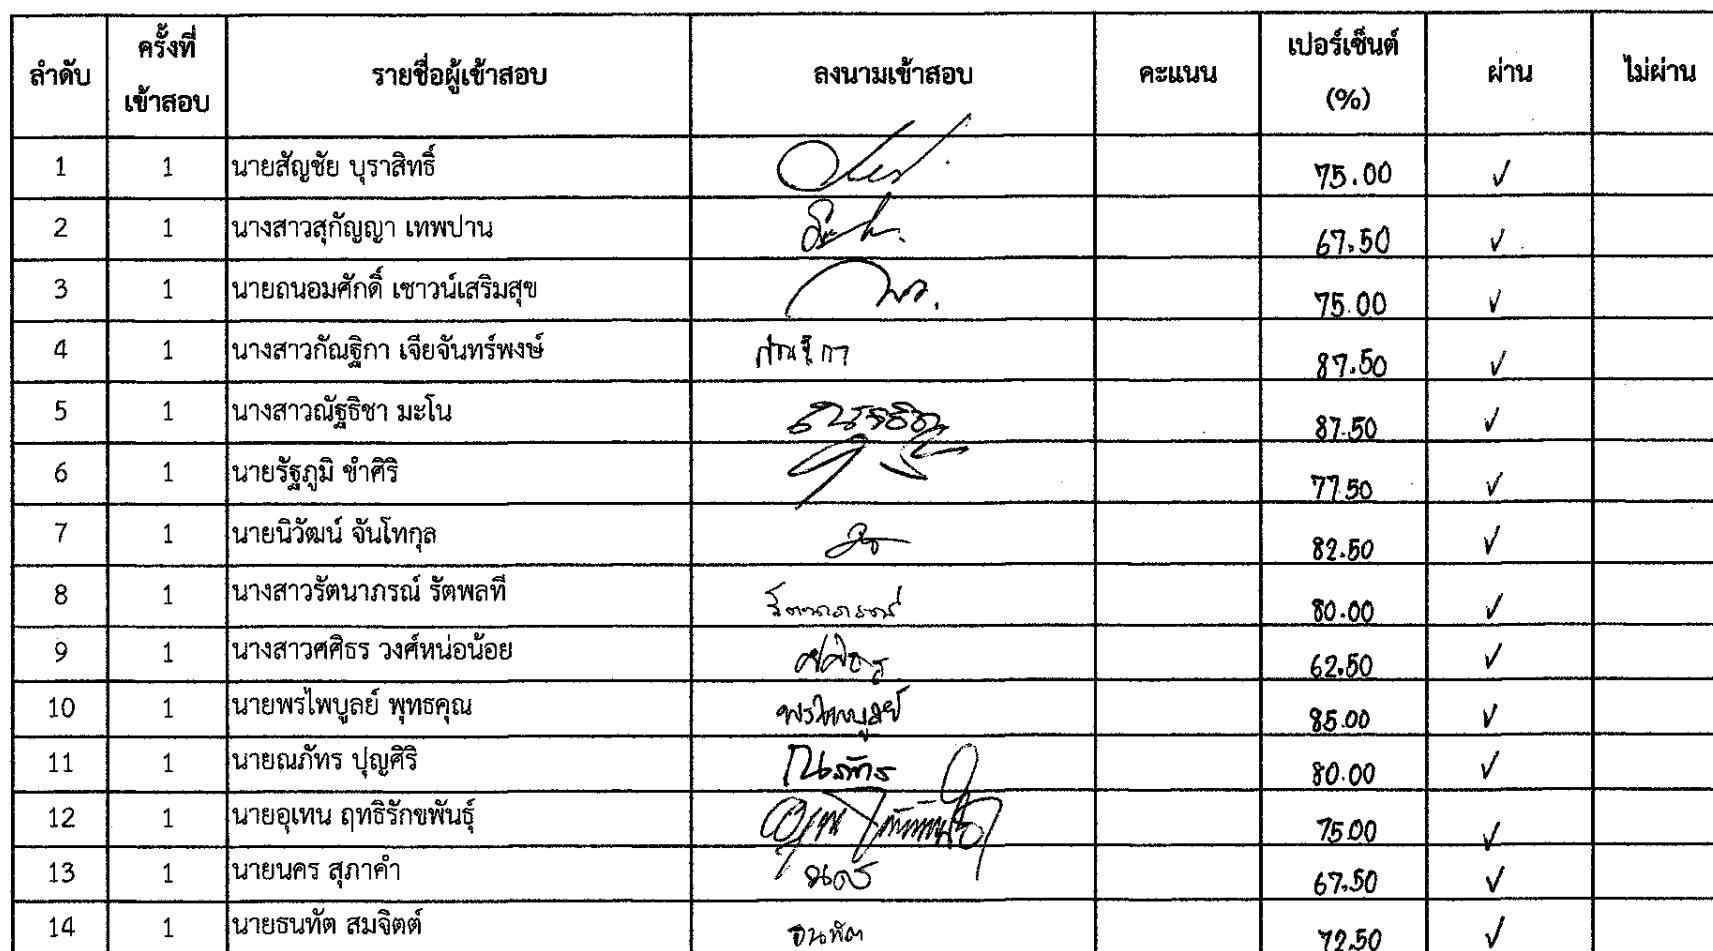 ลำดับ ครั้งที่เข้าสอบ รายชื่อผู้เข้าสอบ ลงนามเข้าสอบ คะแนน เปอร์เซ็นต์ (%) ผ่าน ไม่ผ่าน
1 1 นายสัญชัย บุราสิทธิ์ 75.00 ✓
2 1 นางสาวสุกัญญา เทพปาน 67.50 ✓
3 1 นายถนอมศักดิ์ เชาวน์เสริมสุข 75.00 ✓
4 1 นางสาวกัณฐิกา เจียจันทร์พงษ์ กัณฐิกา 87.50 ✓
5 1 นางสาวณัฐธิชา มะโน 87.50 ✓
6 1 นายรัฐภูมิ ขำศิริ 77.50 ✓
7 1 นายนิวัฒน์ จันโทกุล 82.50 ✓
8 1 นางสาวรัตนาภรณ์ รัตพลที รัตนาภรณ์ 80.00 ✓
9 1 นางสาวศศิธร วงศ์หน่อน้อย ศศิธร 62.50 ✓
10 1 นายพรไพบูลย์ พุทธคุณ พรไพบูลย์ 85.00 ✓
11 1 นายณภัทร ปุญศิริ ณภัทร 80.00 ✓
12 1 นายอุเทน ฤทธิรักขพันธุ์ 75.00 ✓
13 1 นายนคร สุภาคำ นคร 67.50 ✓
14 1 นายธนทัต สมจิตต์ ธนทัต 72.50 ✓